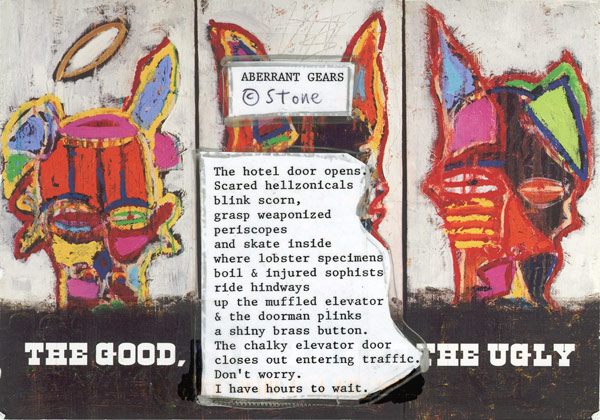 ABERRANT GEARS
© Stone
The hotel door opens.
Scared hellzonicals
blink scorn,
grasp weaponized
periscopes
and skate inside
where lobster specimens
boil & injured sophists
ride hindways
up the muffled elevator
& the doorman plinks
a shiny brass button.
The chalky elevator door
closes out entering traffic.
Don't worry.
I have hours to wait.
THE GOOD, THE UGLY